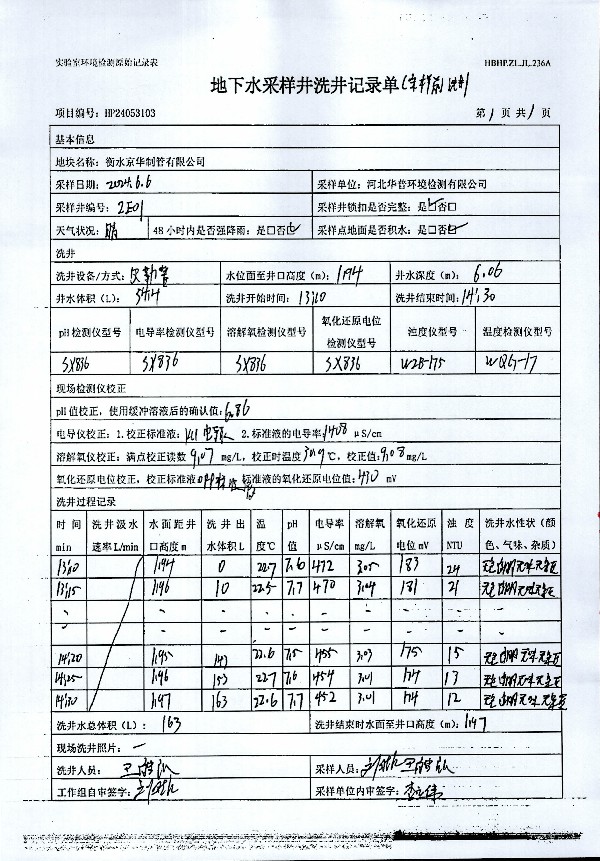 实验室环境检测原始记录表 HBHP.ZL.JL.236A
地下水采样井洗井记录单(采样前洗井)
项目编号: HP24053103 第1页共1页
基本信息
地块名称: 衡水京华制管有限公司
采样日期: 2024.6.6 采样单位: 河北华普环境检测有限公司
采样井编号: 2E01 采样井锁扣是否完整: 是☑否□
天气状况: 晴 48小时内是否强降雨: 是□否☑ 采样点地面是否积水: 是□否☑
洗井
洗井设备/方式: 贝勒管 水位面至井口高度(m): 1.94 井水深度(m): 6.06
井水体积(L): 洗井开始时间: 13:10 洗井结束时间: 14:30
pH检测仪型号 电导率检测仪型号 溶解氧检测仪型号 氧化还原电位检测仪型号 浊度仪型号 温度检测仪型号
SX836 SX836 SX836 SX836 WZB-175 WQG-17
现场检测仪校正
pH值校正, 使用缓冲溶液后的确认值: 6.86
电导仪校正: 1.校正标准液: KCl 2.标准液的电导率: 1408 μS/cm
溶解氧仪校正: 满点校正读数 9.07 mg/L, 校正时温度 ℃, 校正值: 9.08 mg/L
氧化还原电位校正, 校正标准液 标准液的氧化还原电位值: 430 mV
洗井过程记录
时间 min 洗井汲水速率L/min 水面距井口高度m 洗井出水体积L 温度℃ pH值 电导率 μS/cm 溶解氧 mg/L 氧化还原电位mV 浊度 NTU 洗井水性状(颜色、气味、杂质)
13:10 1.94 0 22.7 7.6 472 3.05 183 24
13:15 1.96 10 22.5 7.7 470 3.04 181 21
- - - - - - - - -
- - - - - - - - -
14:20 1.95 143 22.6 7.5 455 3.03 175 15
14:25 1.96 153 22.7 7.6 454 3.01 174 13
14:30 1.97 163 22.6 7.7 452 3.01 174 12
洗井水总体积(L): 163 洗井结束时水面至井口高度(m): 1.97
现场洗井照片: 一
洗井人员: 采样人员:
工作组自审签字: 采样单位内审签字: